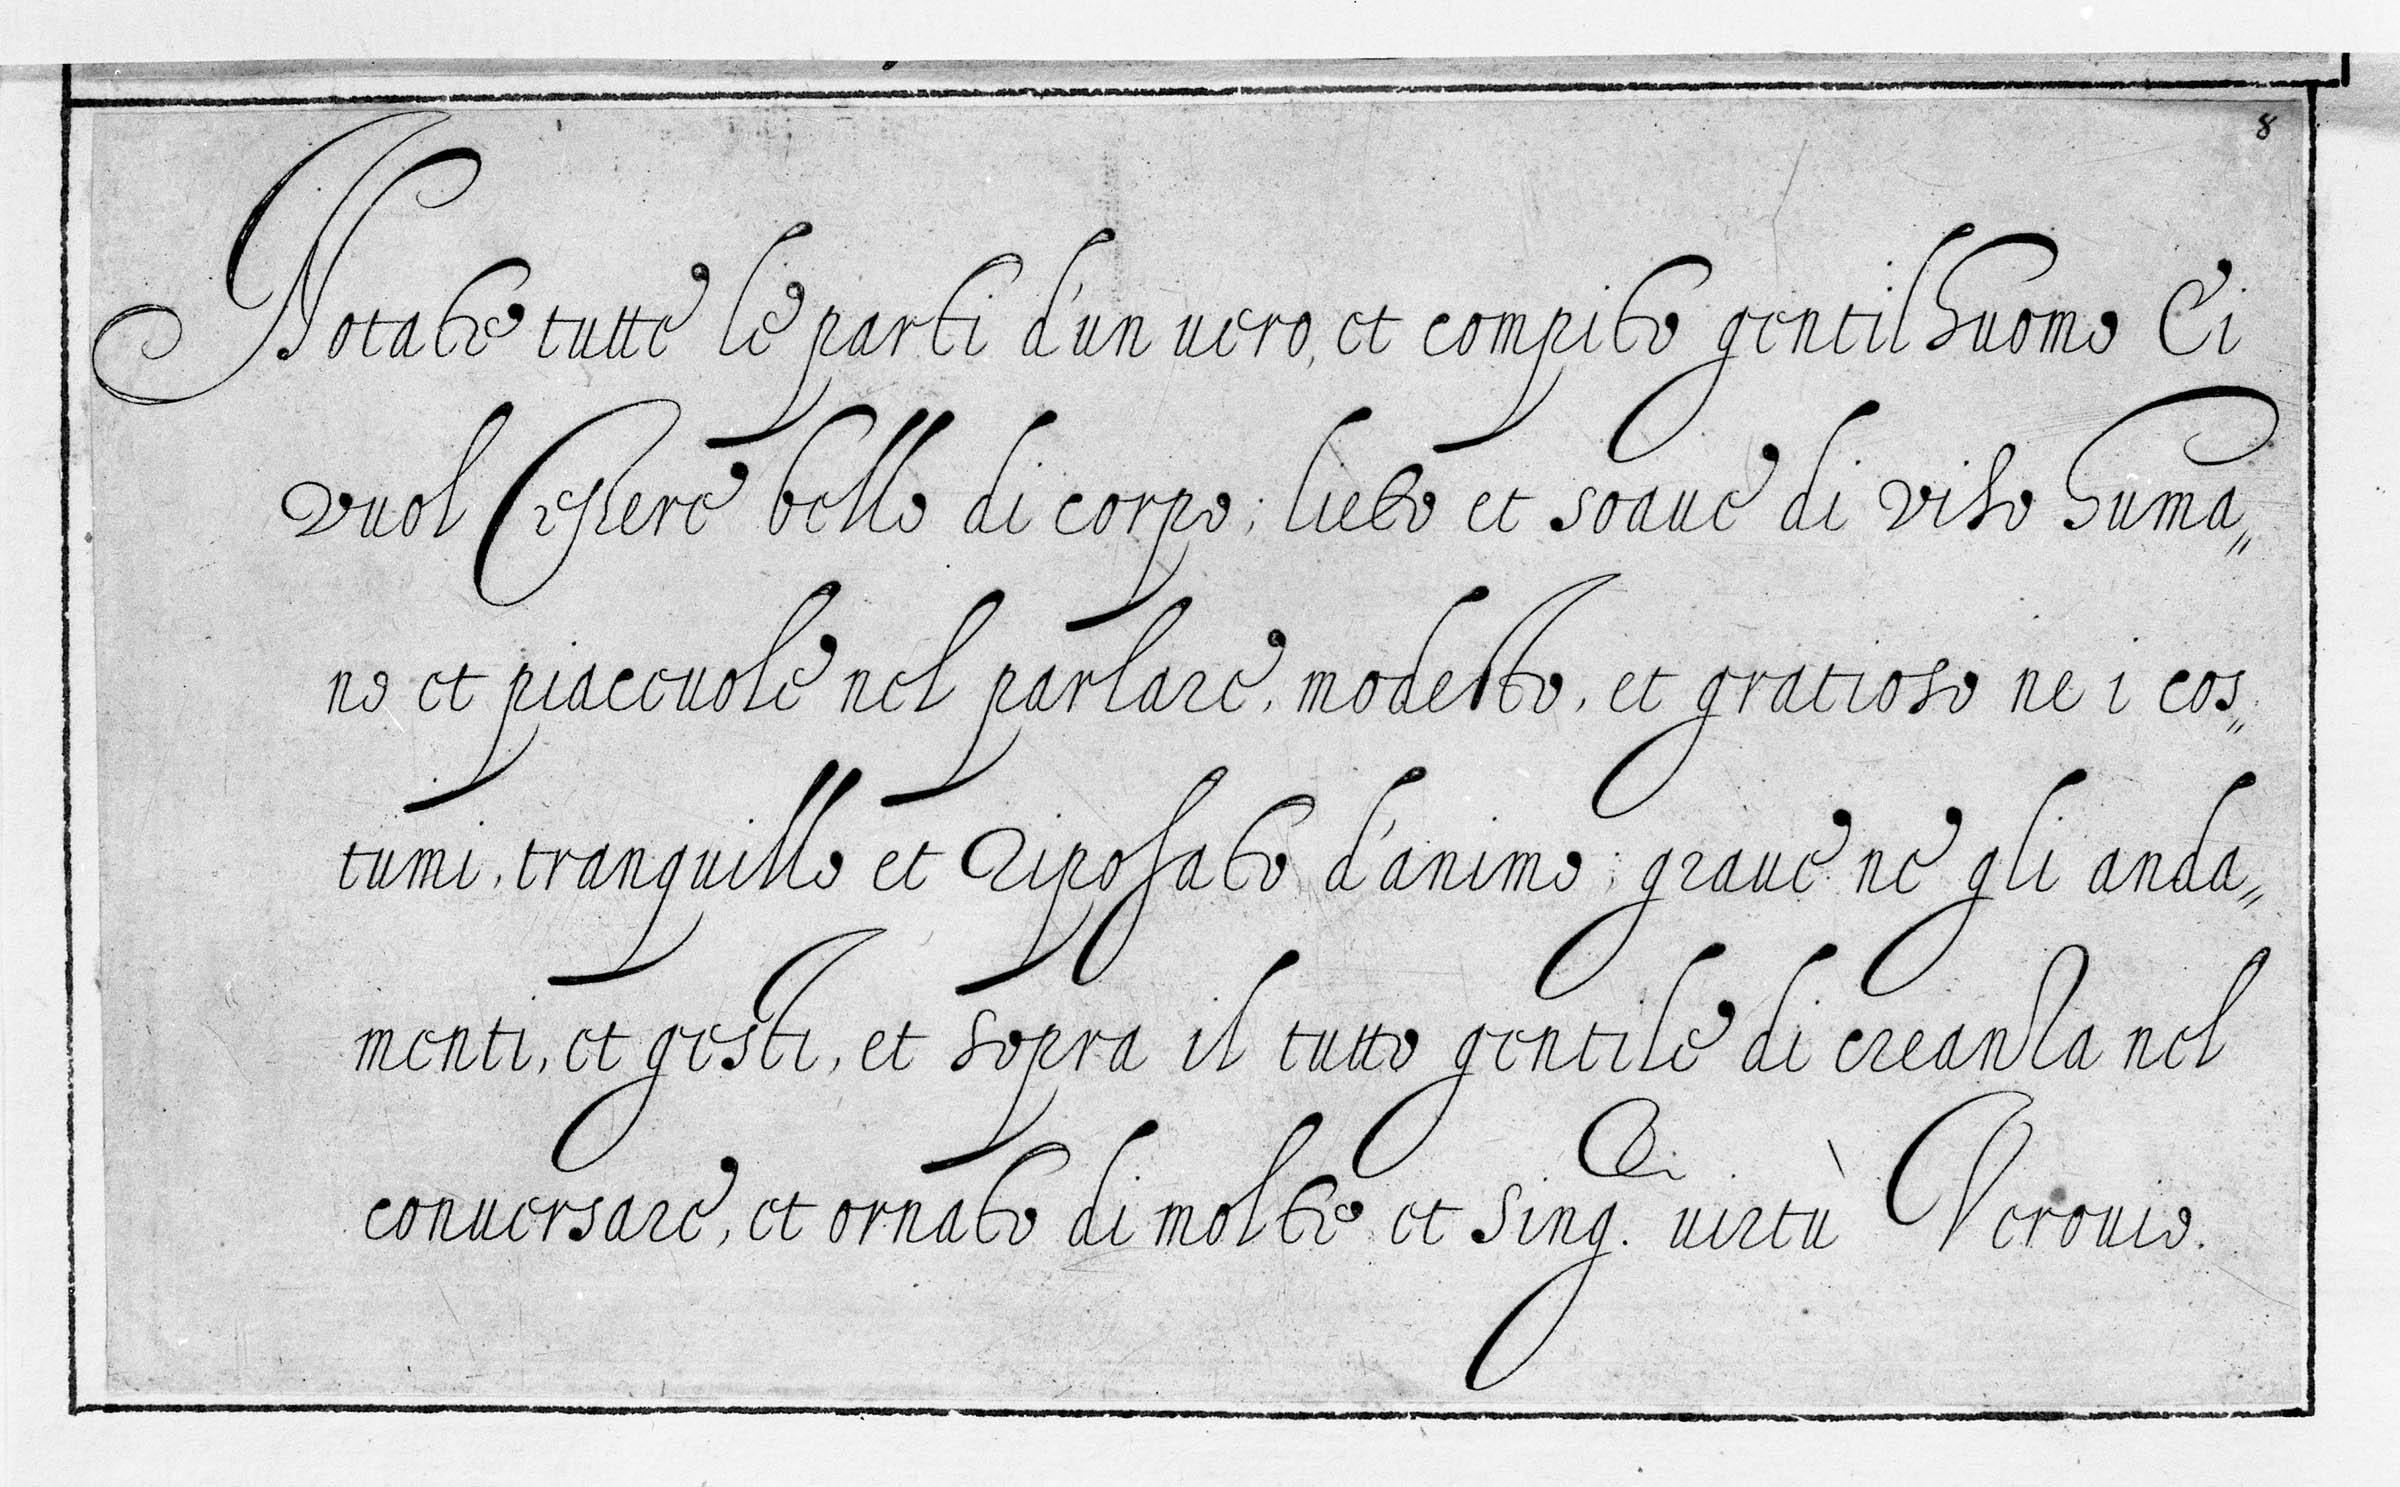 8
Notate tutte le parti d'un uero, et compito gentilhuomo Ei
vuol essere bello di corpo; lieto et soaue di viso huma„
no et piaceuole nel parlare, modesto, et gratioso ne i cos„
tumi, tranquillo et riposato d'animo; graue ne gli anda„
menti, et gesti, et sopra il tutto gentile di creanza nel
conuersare, et ornato di molte et sing.ri uirtù Verouio.